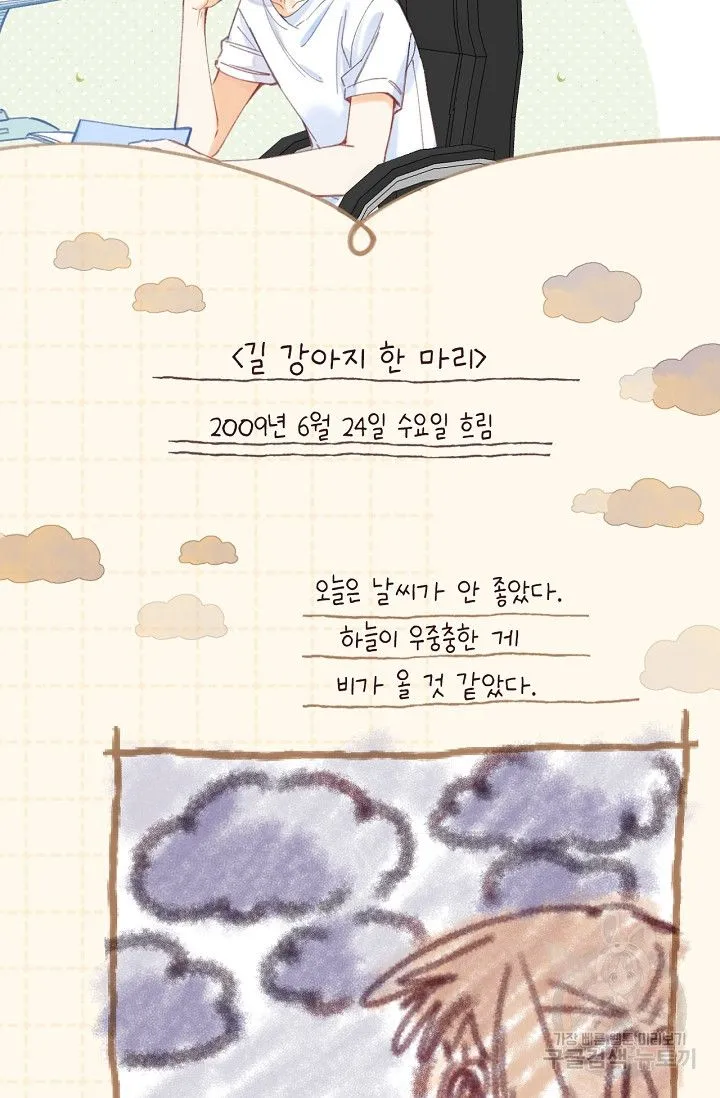 <길 강아지 한 마리>
2009년 6월 24일 수요일 흐림
오늘은 날씨가 안 좋았다.
하늘이 우중충한 게
비가 올 것 같았다.
가장 빠른 웹툰 미리보기
구글검색 뉴토끼